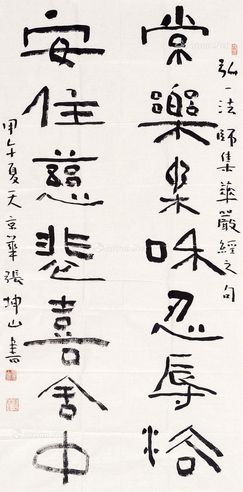 弘一法師集華嚴經之句
常樂柔和忍辱法
安住慈悲喜舍中
甲午夏天京華張坤山書